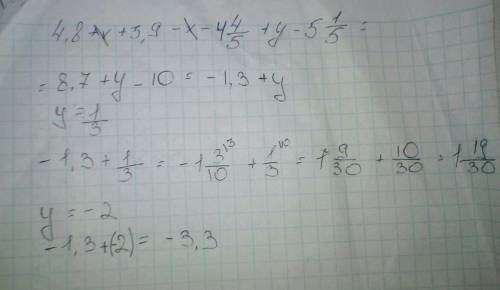 4,8 + x + 3,9 - x - 4 4/5 + y - 5 1/5 =
= 8,7 + y - 10 = -1,3 + y
y = 1/3
-1,3 + 1/3 = -1 3^{13}/10 + 1^{10}/3 = 1 9/30 + 10/30 = 1 19/30
y = -2
-1,3 + (-2) = -3,3